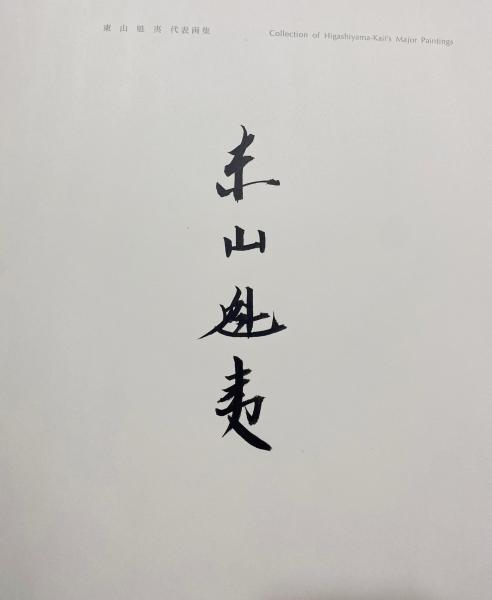 東山魁夷 代表画集
Collection of Higashiyama-Kaii's Major Paintings
東山魁夷